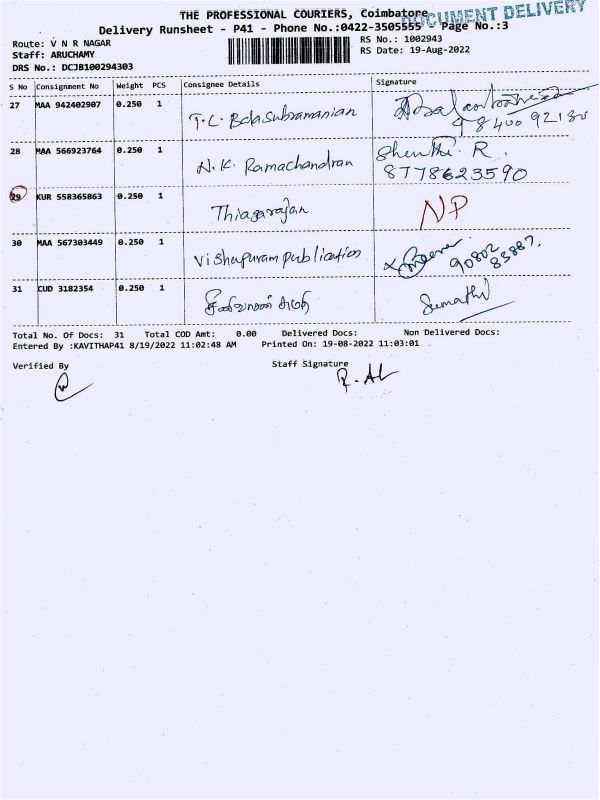 THE PROFESSIONAL COURIERS, Coimbatore
DOCUMENT DELIVERY
Delivery Runsheet - P41 - Phone No.:0422-3505555 Page No.:3
Route: V N R NAGAR
RS No.: 1002943
Staff: ARUCHAMY
RS Date: 19-Aug-2022
DRS No.: DCJB100294303
S No Consignment No Weight PCS Consignee Details Signature
27 MAA 942402907 0.250 1 T.C. Balasubramanian
28 MAA 566923764 0.250 1 N.K. Ramachandran Shenthi. R.
8778623590
29 KUR 558365863 0.250 1 Thiagarajan NP
30 MAA 567303449 0.250 1 Vishupuram publication 90802
83887.
31 CUD 3182354 0.250 1 Sumathi
Total No. Of Docs: 31 Total COD Amt: 0.00 Delivered Docs: Non Delivered Docs:
Entered By :KAVITHAP41 8/19/2022 11:02:48 AM Printed On: 19-08-2022 11:03:01
Verified By Staff Signature